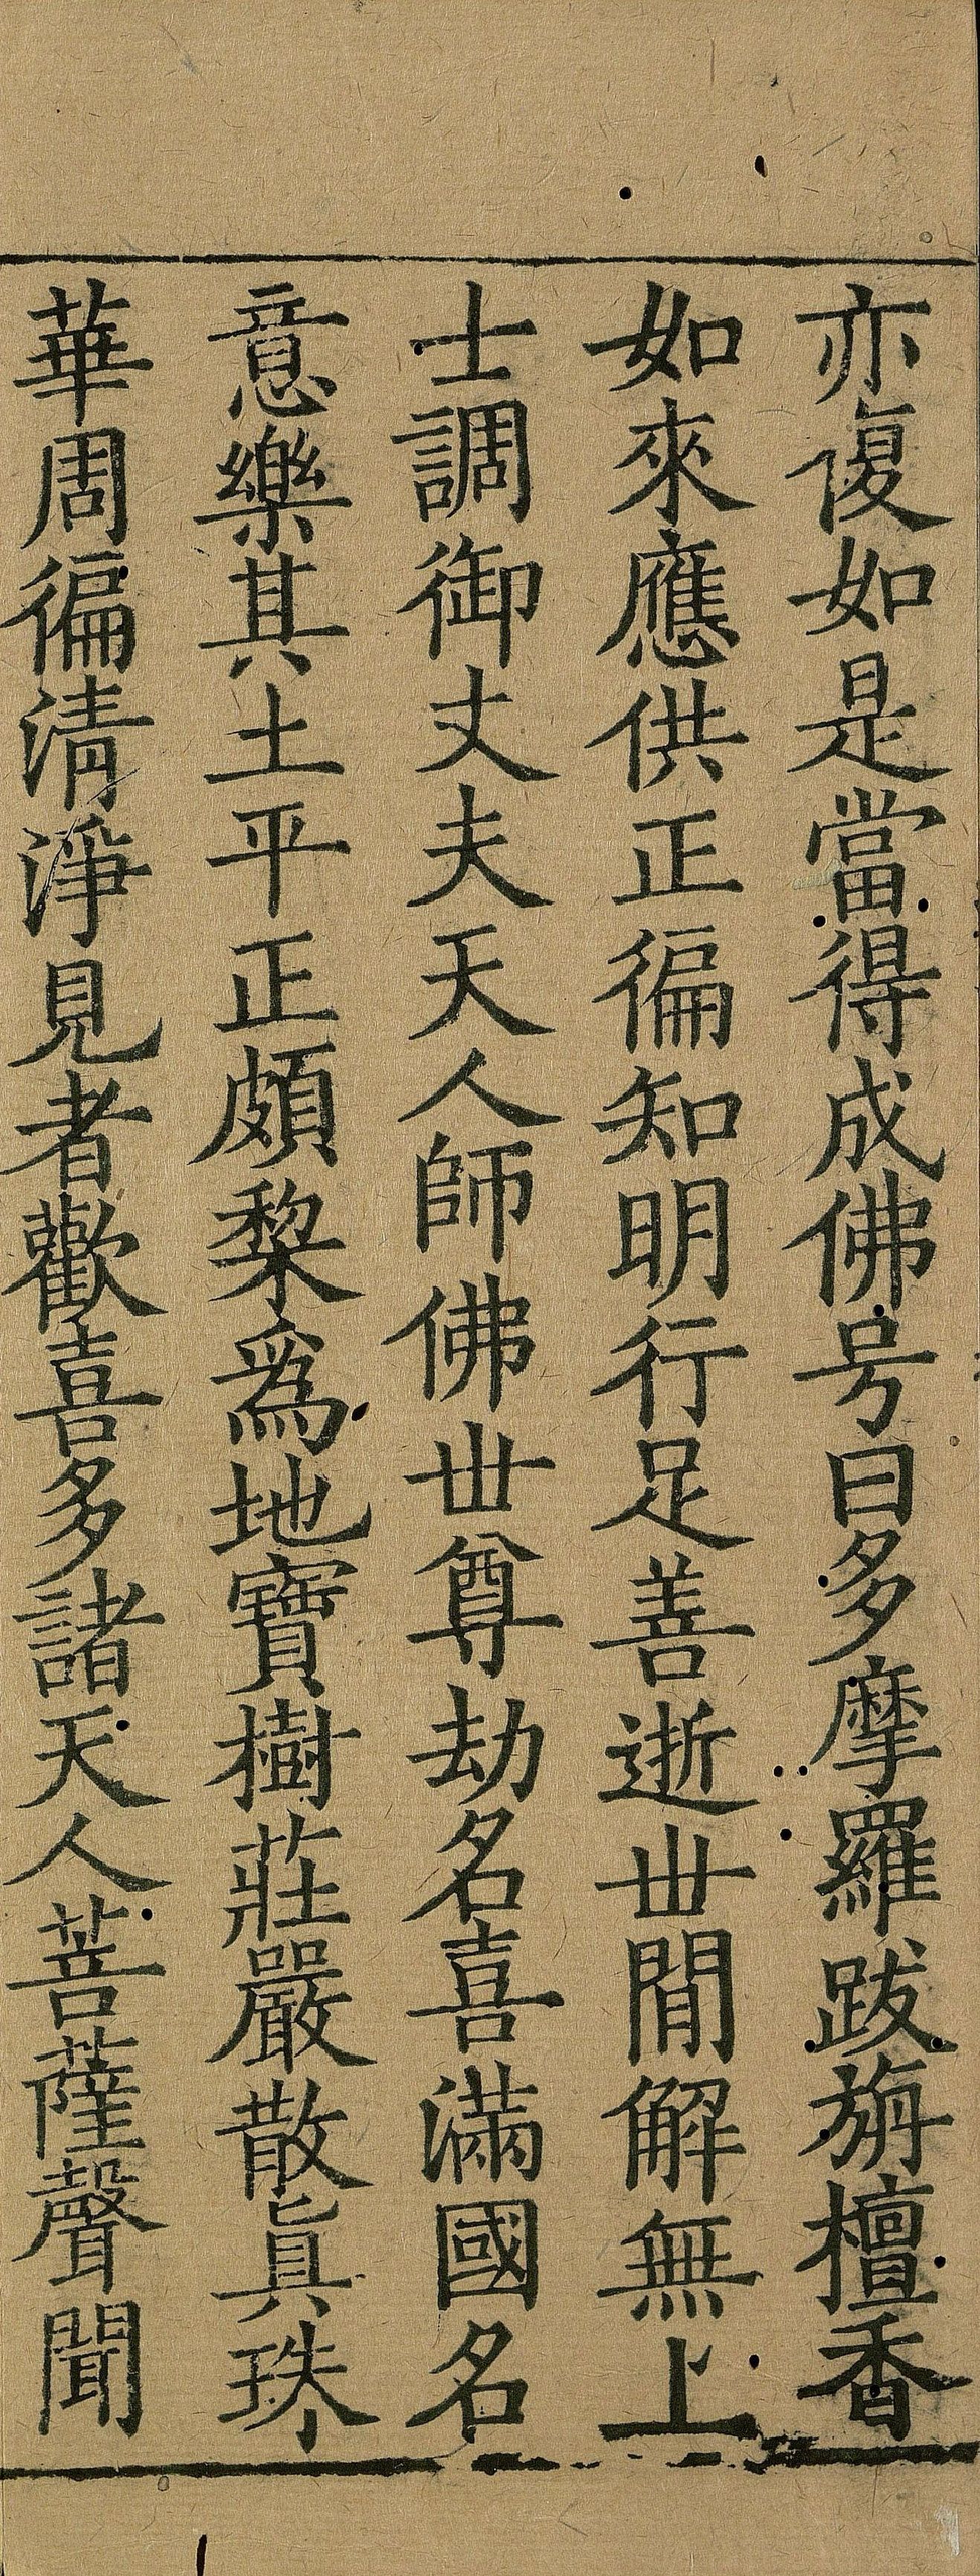 亦復如是當得成佛号曰多摩羅跋旃檀香
如來應供正徧知明行足善逝丗閒解無上
士調御丈夫天人師佛丗尊劫名喜滿國名
意樂其土平正頗棃爲地寶樹莊嚴散眞珠
華周徧清淨見者歡喜多諸天人菩薩聲聞